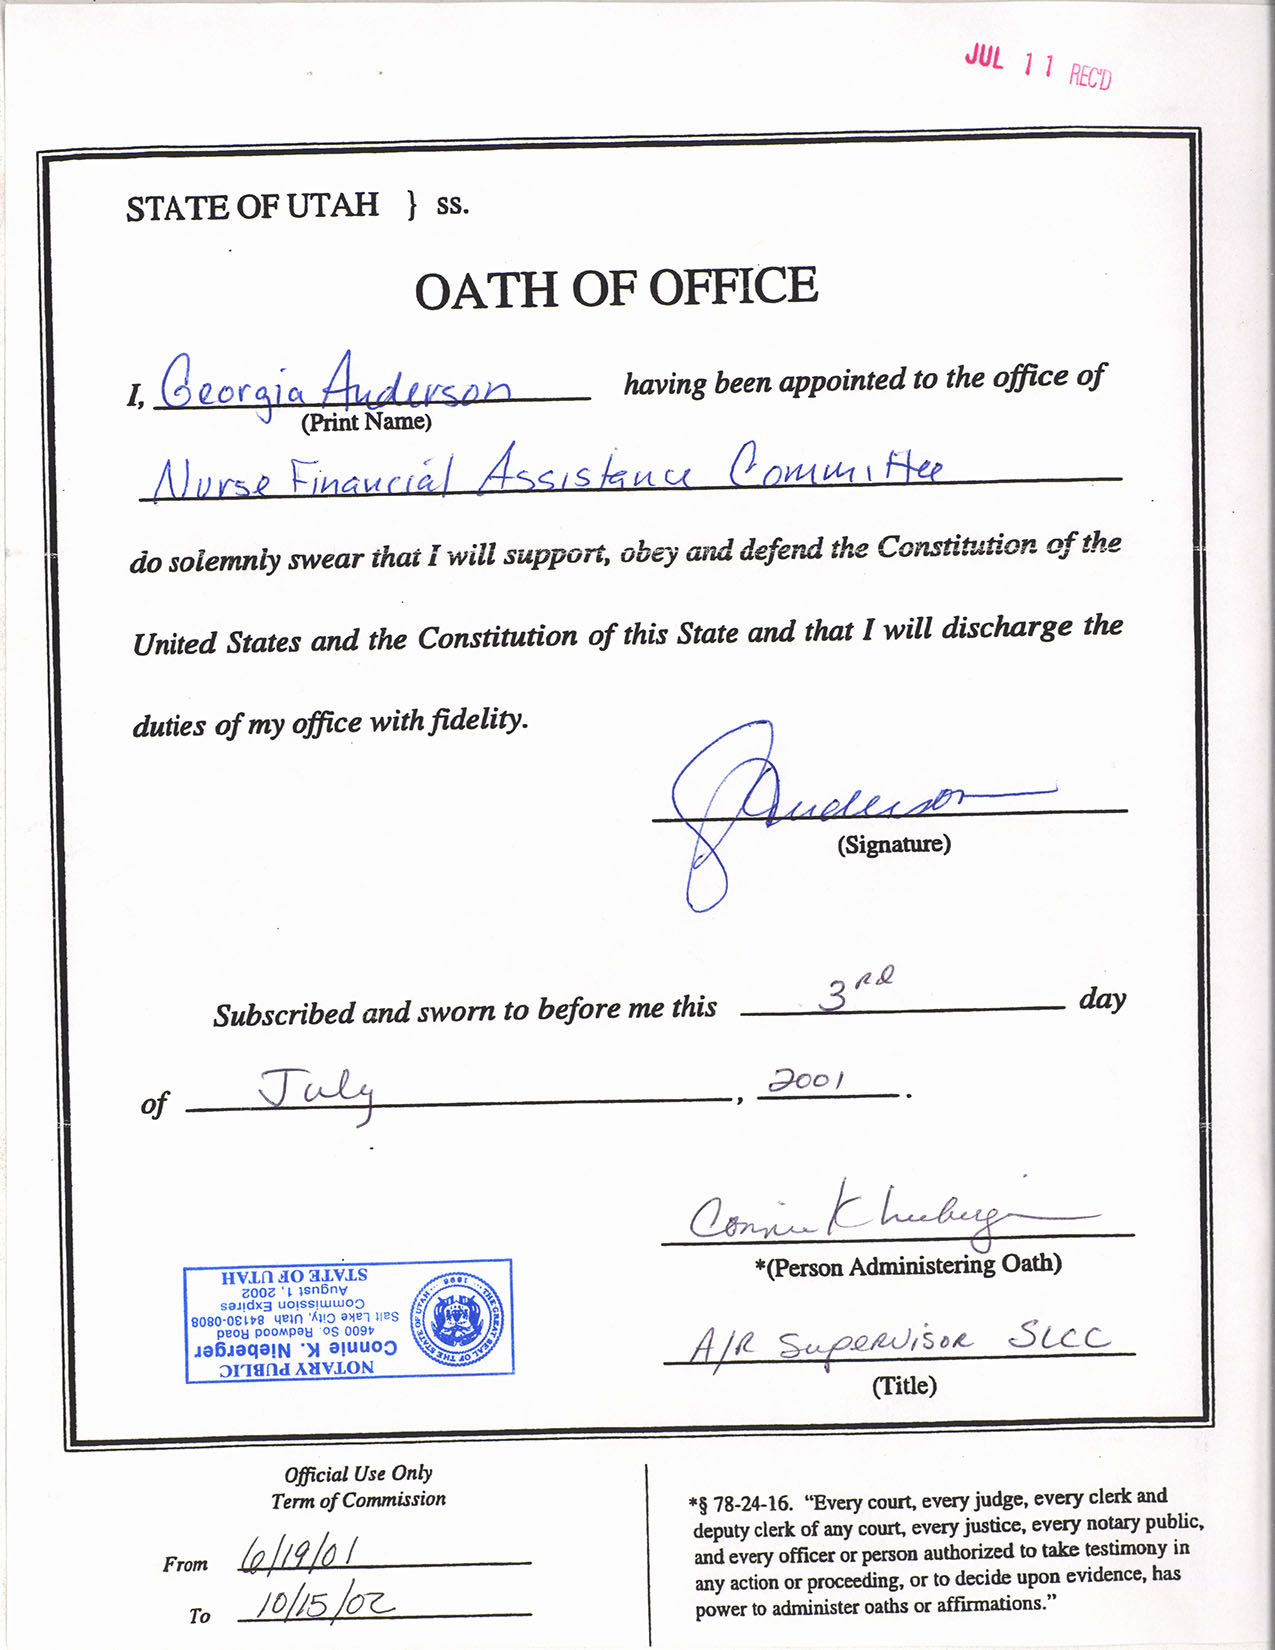 JUL 11 REC'D
STATE OF UTAH } ss.
OATH OF OFFICE
I, Georgia Anderson having been appointed to the office of
(Print Name)
Nurse Financial Assistance Committee
do solemnly swear that I will support, obey and defend the Constitution of the
United States and the Constitution of this State and that I will discharge the
duties of my office with fidelity.
G Anderson
(Signature)
Subscribed and sworn to before me this 3RD day
of July, 2001.
Connie K Nieberger
*(Person Administering Oath)
A/R Supervisor SLCC
(Title)
NOTARY PUBLIC
Connie K. Nieberger
4600 So. Redwood Road
Salt Lake City, Utah 84130-0808
Commission Expires
August 1, 2002
STATE OF UTAH
THE GREAT SEAL OF THE STATE OF UTAH
1896
Official Use Only
Term of Commission
From 6/19/01
To 10/15/02
*§ 78-24-16. "Every court, every judge, every clerk and
deputy clerk of any court, every justice, every notary public,
and every officer or person authorized to take testimony in
any action or proceeding, or to decide upon evidence, has
power to administer oaths or affirmations."